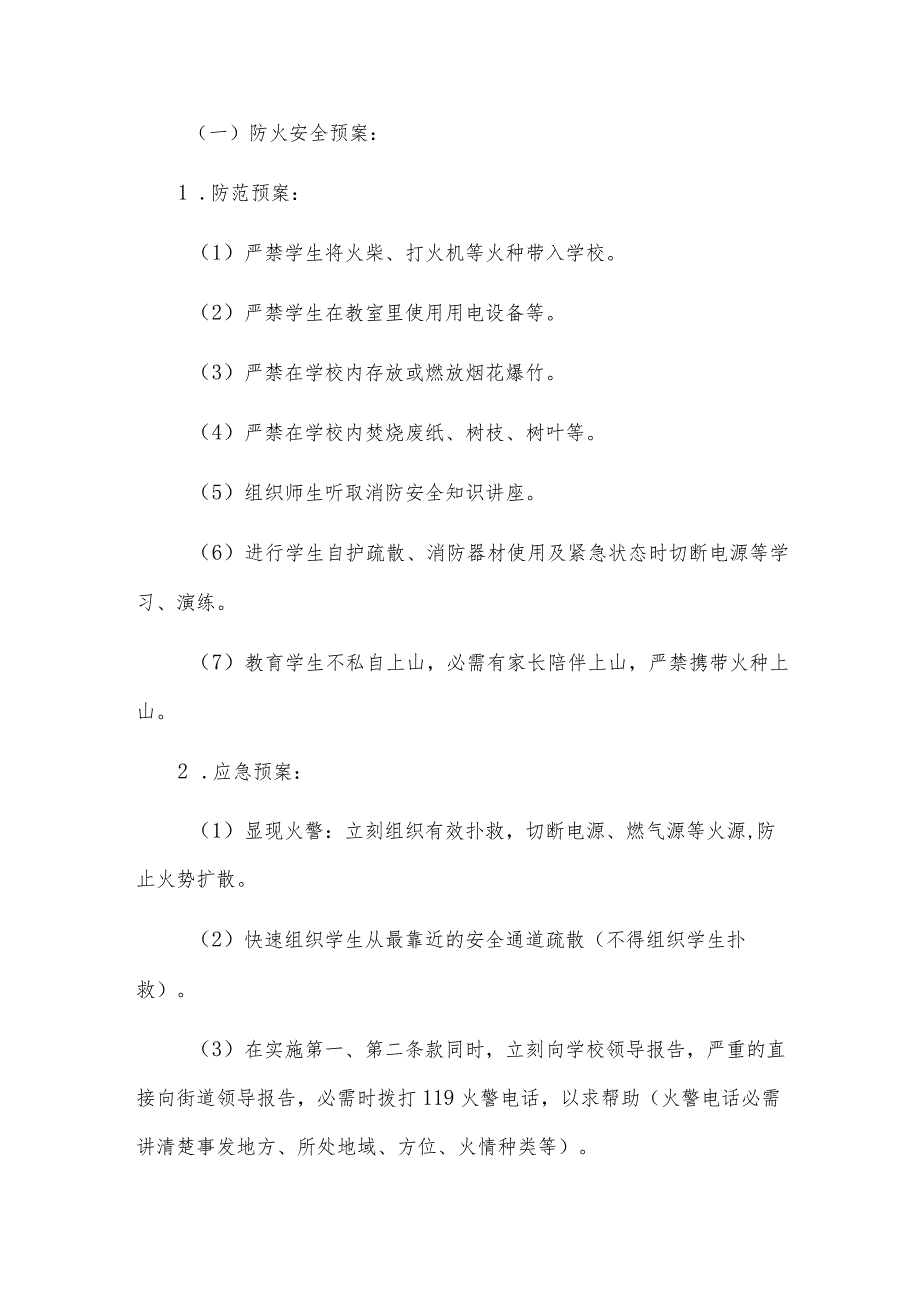 （一）防火安全预案：
1 .防范预案：
（1）严禁学生将火柴、打火机等火种带入学校。
（2）严禁学生在教室里使用用电设备等。
（3）严禁在学校内存放或燃放烟花爆竹。
（4）严禁在学校内焚烧废纸、树枝、树叶等。
（5）组织师生听取消防安全知识讲座。
（6）进行学生自护疏散、消防器材使用及紧急状态时切断电源等学
习、演练。
（7）教育学生不私自上山，必需有家长陪伴上山，严禁携带火种上
山。
2 .应急预案：
（1）显现火警：立刻组织有效扑救，切断电源、燃气源等火源,防
止火势扩散。
（2）快速组织学生从最靠近的安全通道疏散（不得组织学生扑
救）。
（3）在实施第一、第二条款同时，立刻向学校领导报告，严重的直
接向街道领导报告，必需时拨打 119 火警电话，以求帮助（火警电话必需
讲清楚事发地方、所处地域、方位、火情种类等）。